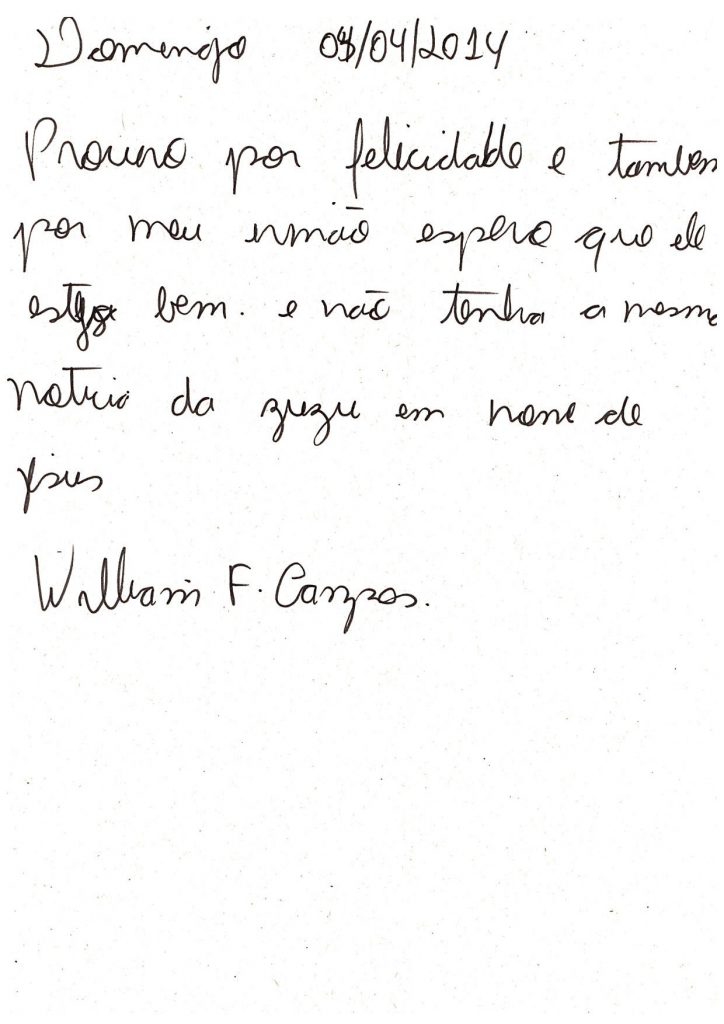 Domingo 04/2014
por felicidade e tambem
por meu irmão espero que ele
bem. e não tenha a mesma
da zuzu em nome de
Jesus
William F. Campos.